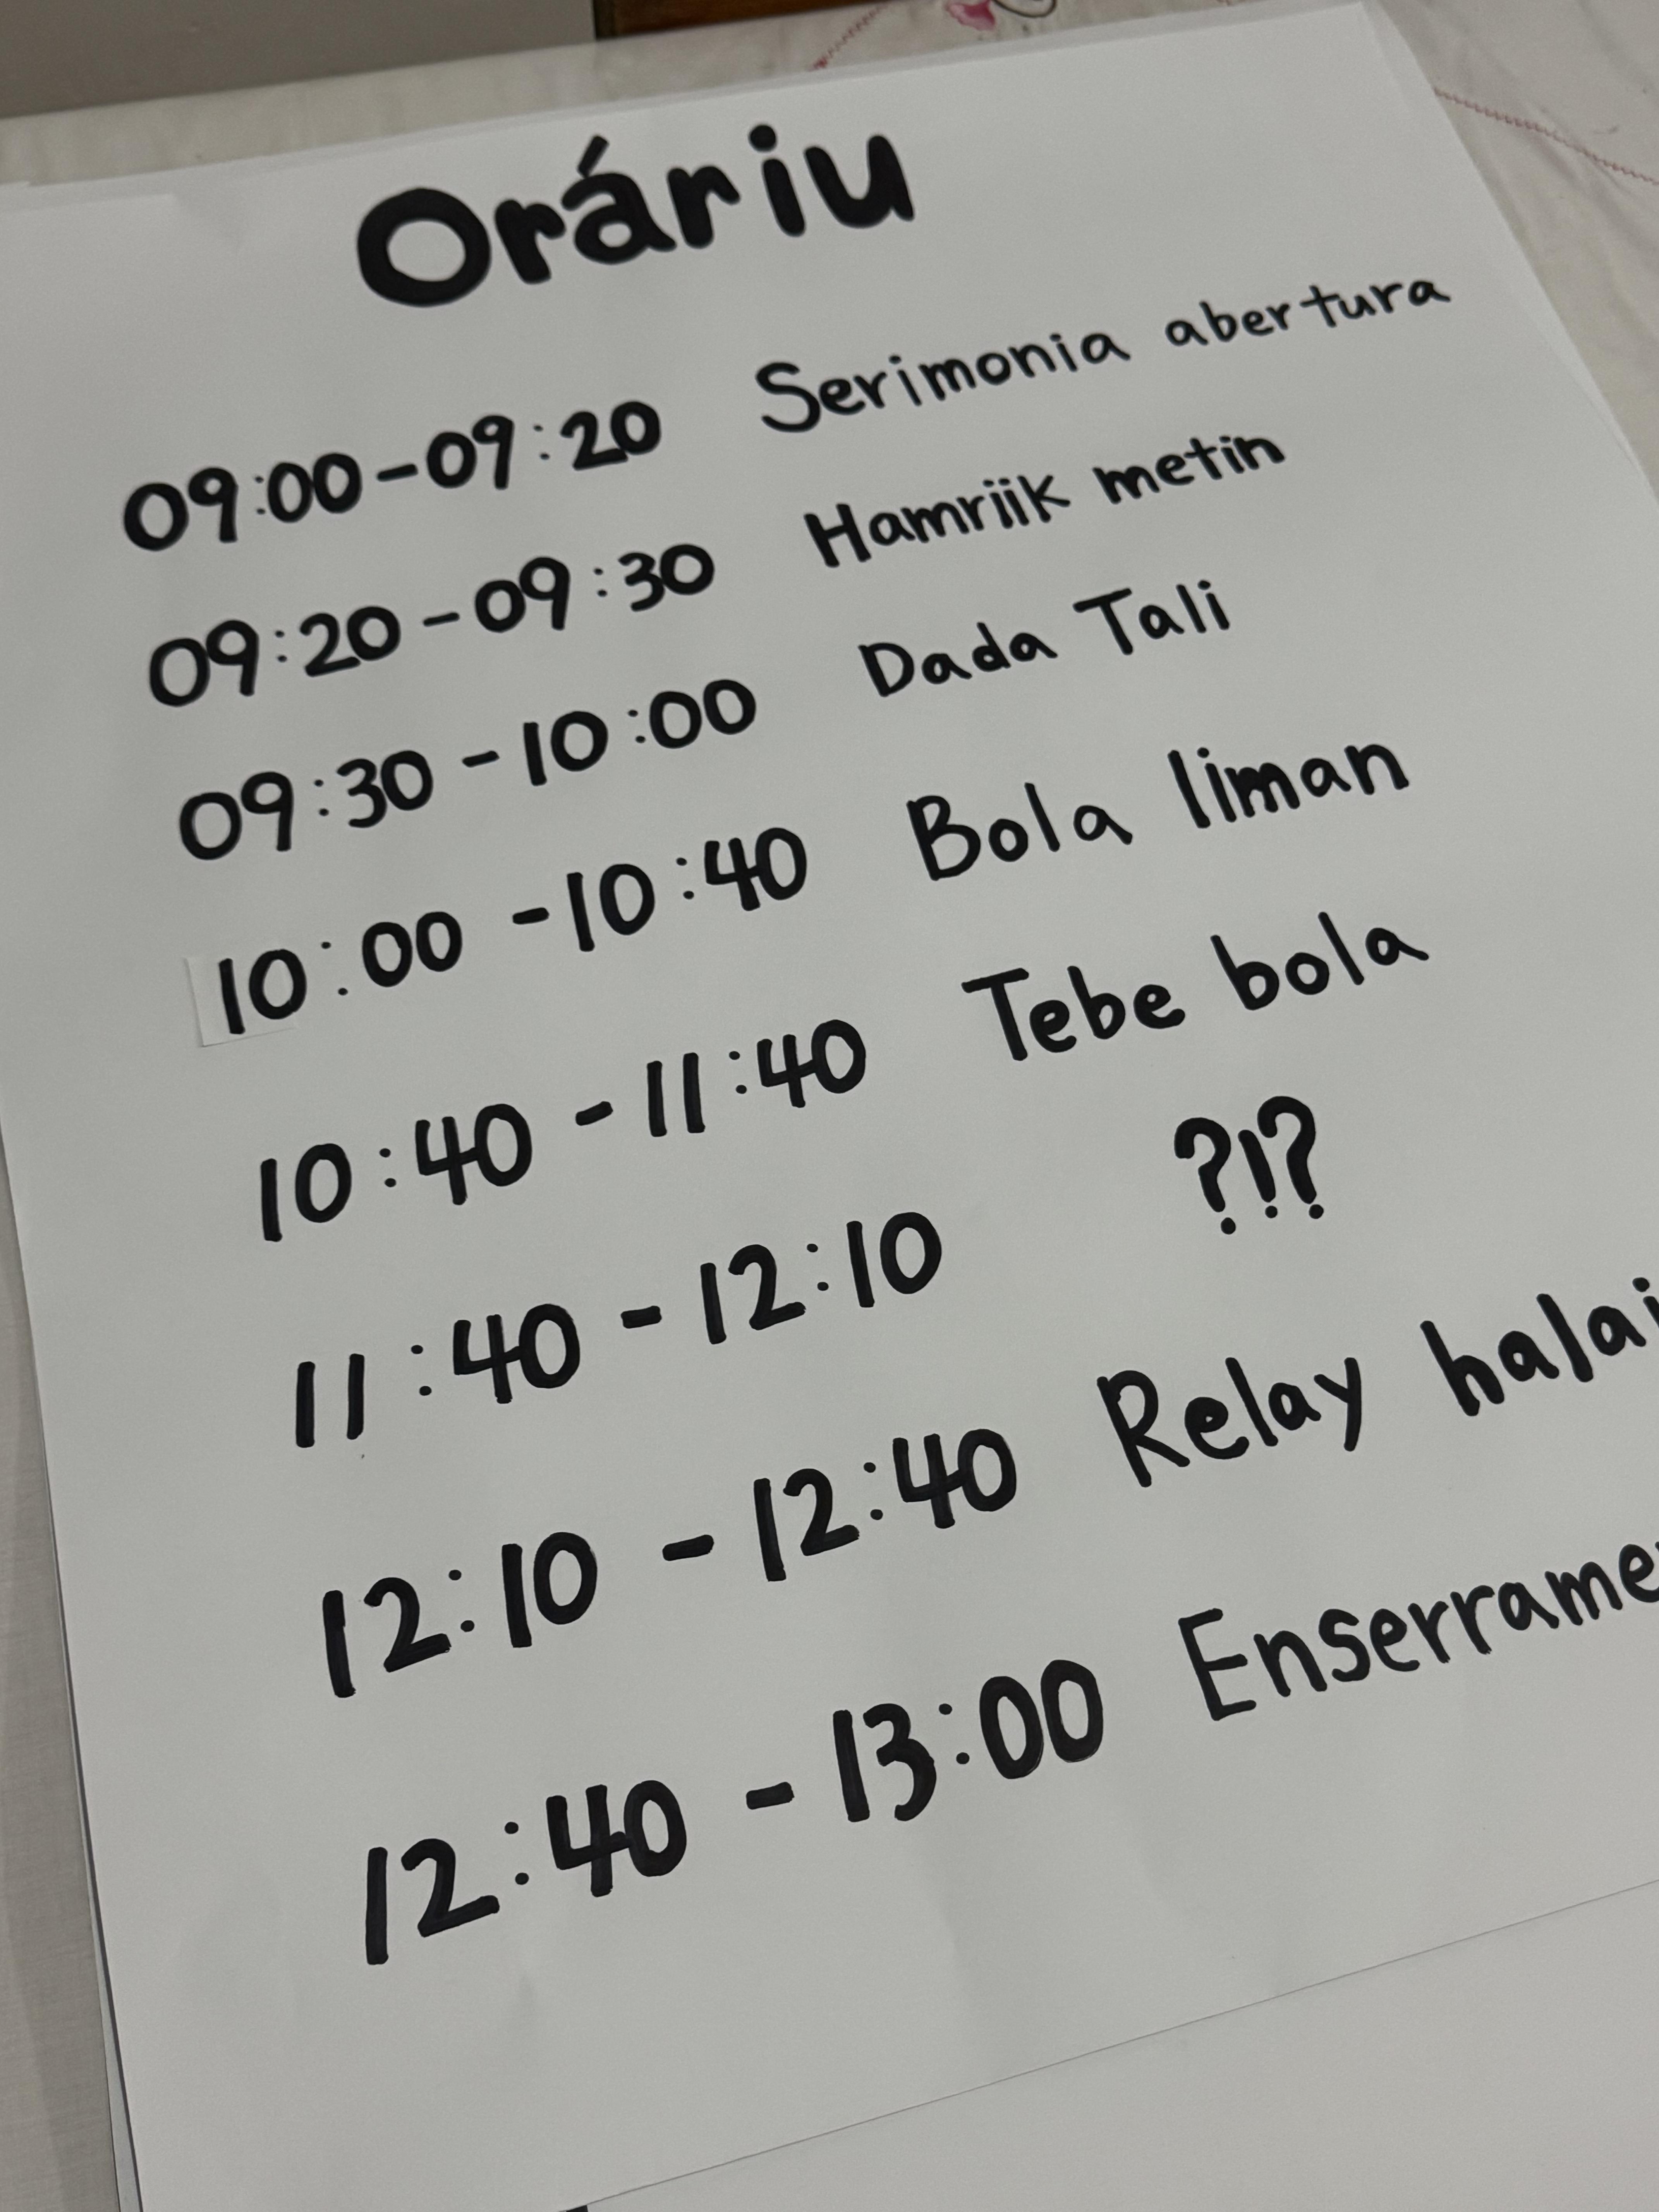 Oráriu
09:00-09:20 Serimonia abertura
09:20-09:30 Hamriik metin
09:30-10:00 Dada Tali
10:00-10:40 Bola liman
10:40-11:40 Tebe bola
11:40-12:10 ?!?
12:10-12:40 Relay halai
12:40-13:00 Enserrame